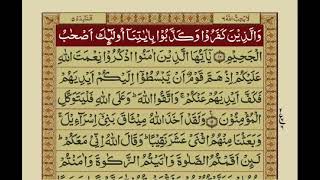 لا یحب اللہ ٦
وَالَّذِيْنَ كَفَرُوْا وَكَذَّبُوْا بِاٰيٰتِنَاۤ اُولٰٓئِكَ اَصْحٰبُ
الْجَحِيْمِ يٰۤاَيُّهَا الَّذِيْنَ اٰمَنُوا اذْكُرُوْا نِعْمَتَ اللّٰهِ
عَلَيْكُمْ اِذْ هَمَّ قَوْمٌ اَنْ يَّبْسُطُوْۤا اِلَيْكُمْ اَيْدِيَهُمْ
فَكَفَّ اَيْدِيَهُمْ عَنْكُمْ ۚ وَاتَّقُوا اللّٰهَ ؕ وَعَلَى اللّٰهِ فَلْيَتَوَكَّلِ
الْمُؤْمِنُوْنَ وَلَقَدْ اَخَذَ اللّٰهُ مِيْثَاقَ بَنِيْۤ اِسْرَآءِيْلَ ۚ
وَبَعَثْنَا مِنْهُمُ اثْنَيْ عَشَرَ نَقِيْبًا ؕ وَقَالَ اللّٰهُ اِنِّيْ مَعَكُمْ ؕ
لَئِنْ اَقَمْتُمُ الصَّلٰوةَ وَاٰتَيْتُمُ الزَّكٰوةَ وَاٰمَنْتُمْ